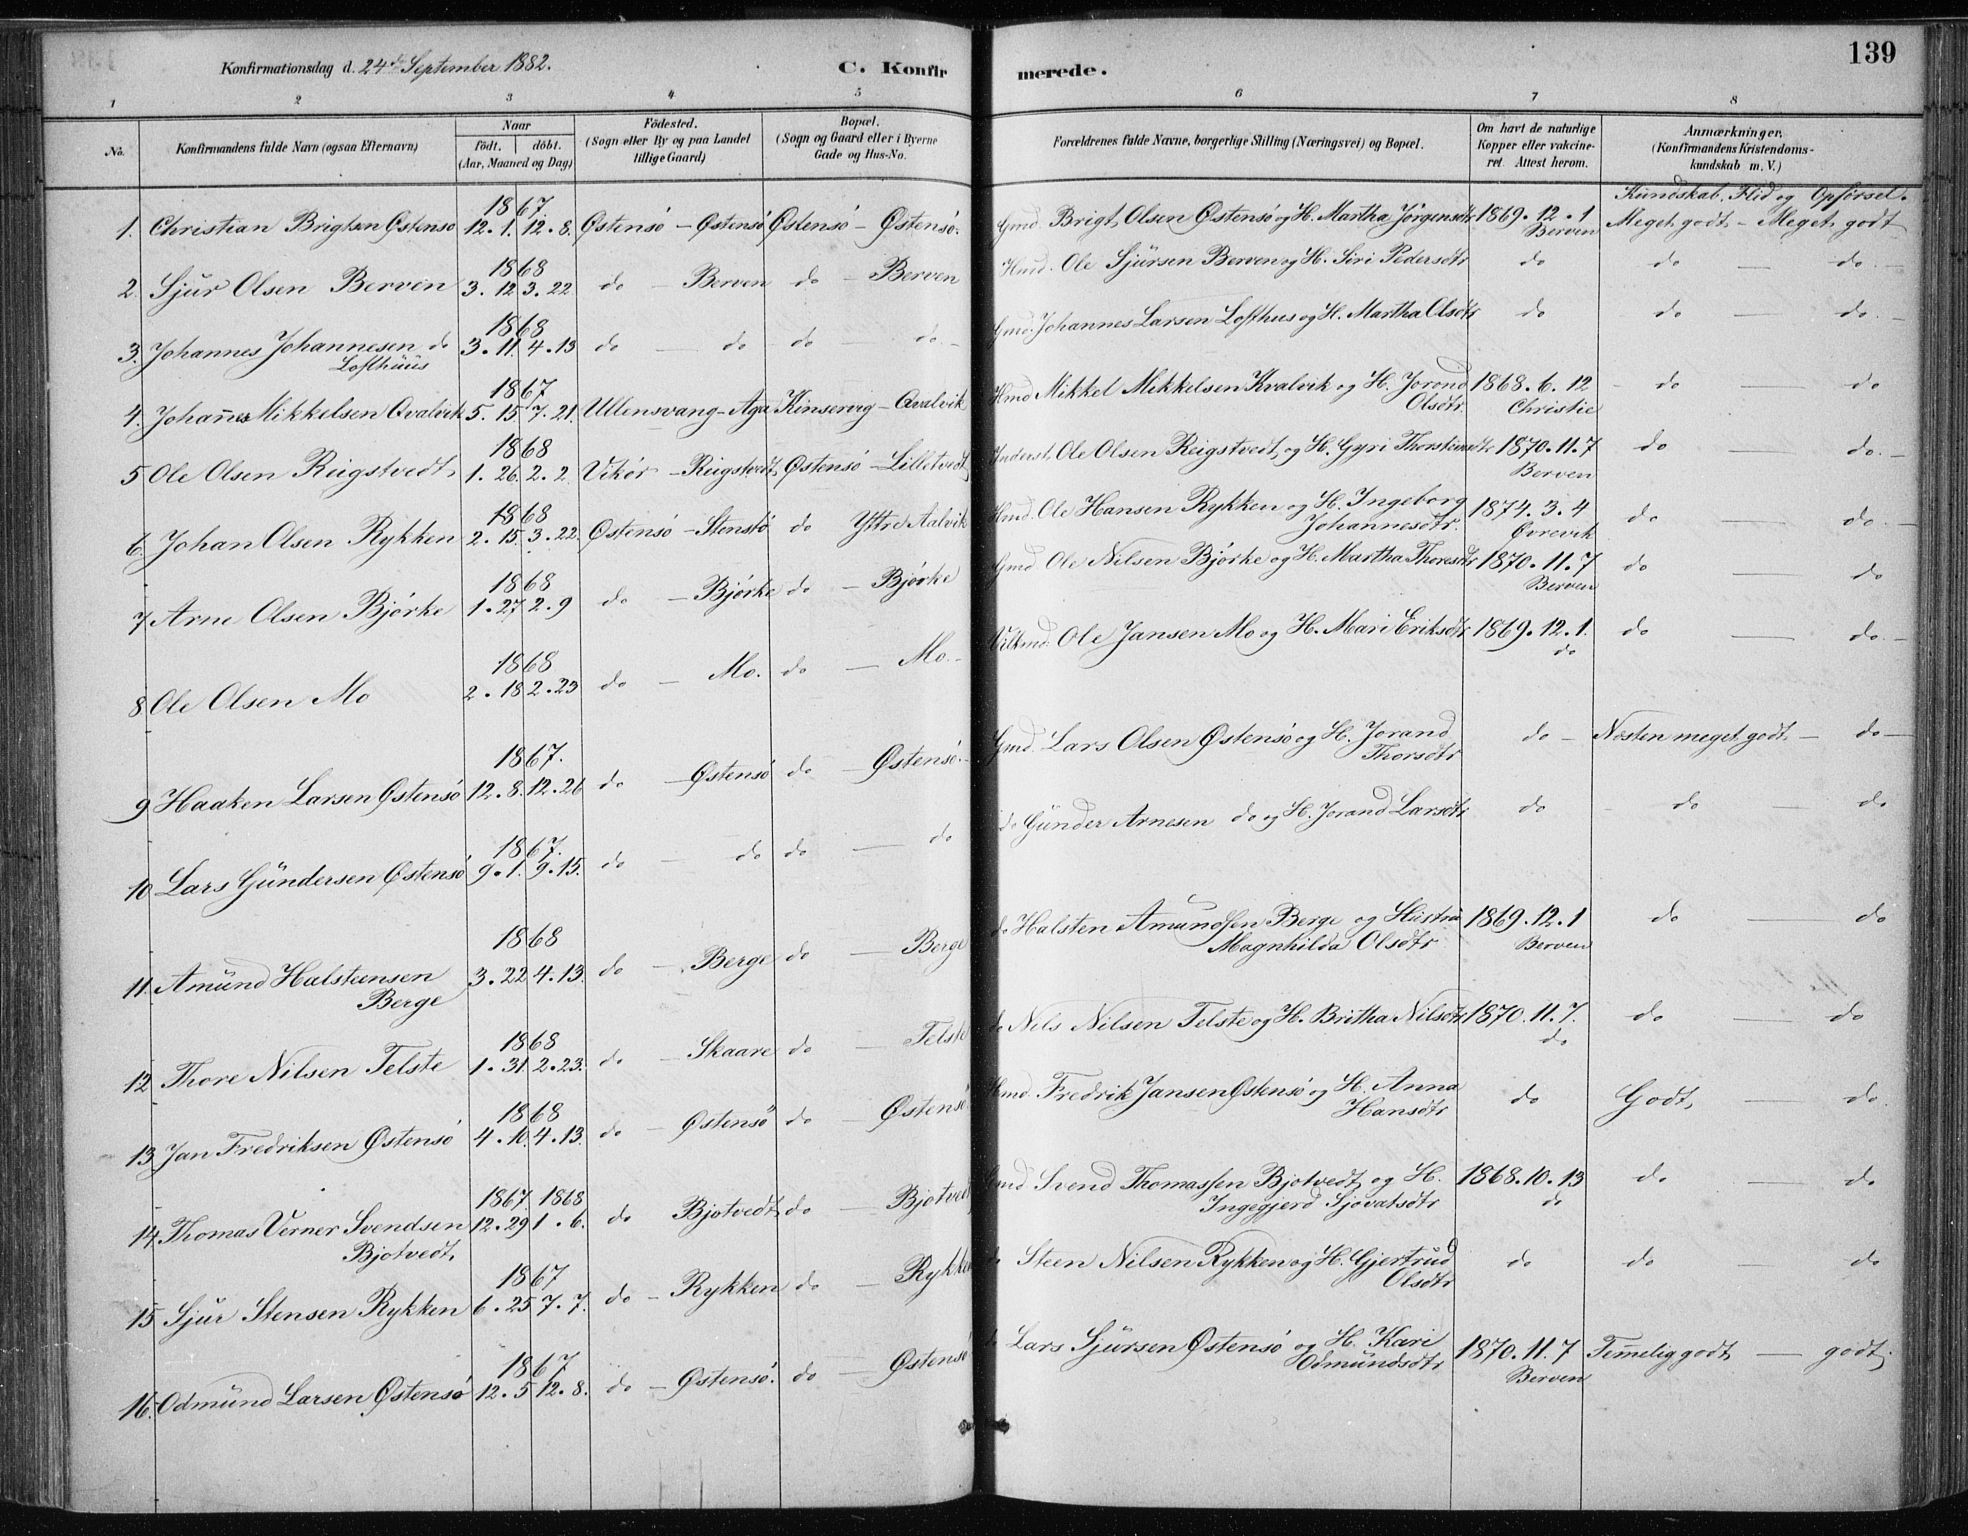 Konfirmationsdag d. 24de September 1882. C. Konfirmerede. 139
1 2 3 4 5 6 7 8
No. Konfirmandens fulde Navn (ogsaa Efternavn) Naar födt. döbt. (Aar, Maaned og Dag) Födested. (Sogn eller By og paa Landet tillige Gaard) Bopæl. (Sogn og Gaard eller i Byerne Gade og Hus-No. Forældrenes fulde Navne, borgerlige Stilling (Næringsvei) og Bopæl. Om havt de naturlige Kopper eller vakcineret. Attest herom. Anmærkninger. (Konfirmandens Kristendomskundskab m. V.)
Kundskab. Flid og Opførsel.
1. Christian Brigtsen Østensø 1867 12.1. 12.8. Østensø – Østensø Østensø – Østensø. Gmd. Brigt Olsen Østensø og H. Martha Jørgensdtr 1869.12.1 Berven Meget godt – Meget godt
2. Sjur Olsen Berven 1868 3.12 3.22 do – Berven do – Berven Hmd. Ole Sjürsen Berven og H. Siri Pedersdtr do do — do. –
3. Johannes Johannesen do Lofthüüs 1868 3.11. 4.13 do — do do — do. – Gmd. Johannes Larsen Lofthus og H. Martha Olsdtr do do — do. –
4. Johan̄es Mikkelsen Qvalvik 1867 5.15. 7.21. Ullensvang – Aga Kinservig – Qvalvik Hmd Mikkel Mikkelsen Kvalvik og H. Jorond Olsdtr. 1868.6.12 Christie – do — do
5 Ole Olsen Reigstvedt 1868 1.26. 2.2. Vikør – Reigstvedt Østensø – Lilletvedt Inderst. Ole Olsen Reigstvedt og H. Gyri Thorsteinsdtr 1870.11.7 Berven do — do. –
6. Johan Olsen Rykken 1868 2.15. 3.22. Østensø – Stenstø do Yttre Aalvik Hmd. Ole Hansen Rykken og H. Ingeborg Johannesdtr. 1874.3.4 Øvrevik do — do. –
7 Arne Olsen Bjørke 1868 1.27 2.9 do – Bjørke do – Bjørke Gmd. Ole Nilsen Bjørke og H. Martha Thoresdtr 1870.11.7 Berven do — do
8 Ole Olsen Mo 1868 2.18 2.23 do – Mo. do — Mo. – Ole Jansen Mo og H. Mari Eriksdtr 1869.12.1. do do — do. –
9 Haaken Larsen Østensø 1867. 12.8. 12.26 do – Østensø do – Østensø. – Gmd. Lars Olsen Østensø og H. Jorand Thorsdtr do – Næsten meget godt – do –
10 Lars Gündersen Østensø 1867. 9.1. 9.15. do — do do — do do Günder Arnesen do og H. Jorand Larsdtr do – do — do
11. Amünd Halsteinsen Berge 1868 3.22 4.13. do – Berge do – Berge do Halsten Amundsen Berge og Hüstru Magnhilda Olsdtr 1869.12.1 Berven do — do
12 Thore Nilsen Telste 1868 1.31 2.23. do – Skaare do – Telste do Nils Nilsen Telste og H. Britha Nilsdtr 1870.11.7. do do — do
13 Jan Fredriksen Østensø 1868 4.10. 4.13. do – Østensø do – Østensø. Hmd. Fredrik Jansen Østensø og H. Anna Hansdtr do Godt — do.
14. Thomas Verner Svendsen Bjotvedt 1867. 12.29 1868 1.6. do Bjotvedt do – Bjotvedt Gmd Svend Thomassen Bjotvedt og H. Ingegjerd Sjovatsdtr 1868.10.13 do do. — do
15 Sjur Stensen Rykken 1867 6.25 7.7. do – Rykken do – Rykken do Steen Nilsen Rykken og H. Gjertrud Olsdtr do do — do
16. Odmünd Larsen Østensø 1867 12.5 12.8. do – Østensø. do – Østensø do Lars Sjürsen Østensø og H. Kari Odmündsdtr 1870.11.7 Berven Tem̄elig godt — godt.